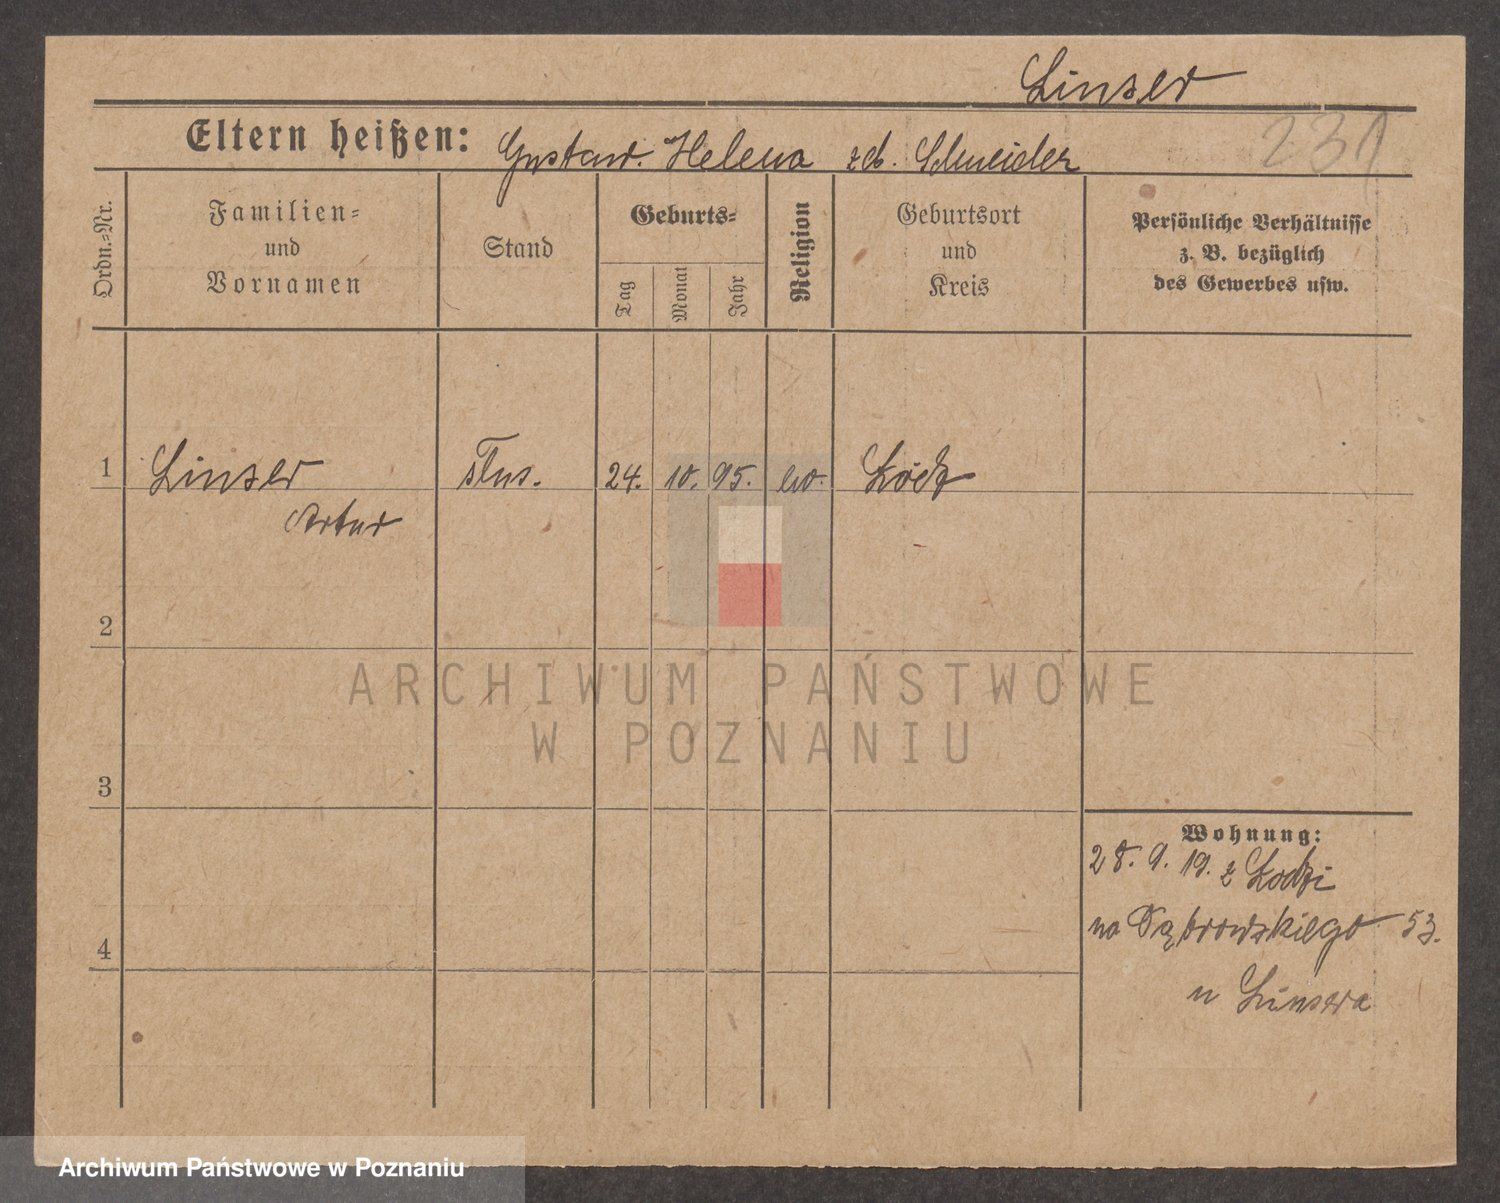 Linser
231
Eltern heißen: Gustaw. Helena zd. Schneider
Ordn.-Nr.
Familien-
und
Vornamen
Stand
Geburts-
Tag
Monat
Jahr
Religion
Geburtsort
und
Kreis
Persönliche Verhältnisse
z. B. bezüglich
des Gewerbes usw.
1 Linser 24. 10. 95. ew. Łódź
Artur
2
3
4
Wohnung:
28. 9. 19. z Łodzi
na Dąbrowskiego 53.
u Linsera
ARCHIWUM PAŃSTWOWE
W POZNANIU
Archiwum Państwowe w Poznaniu